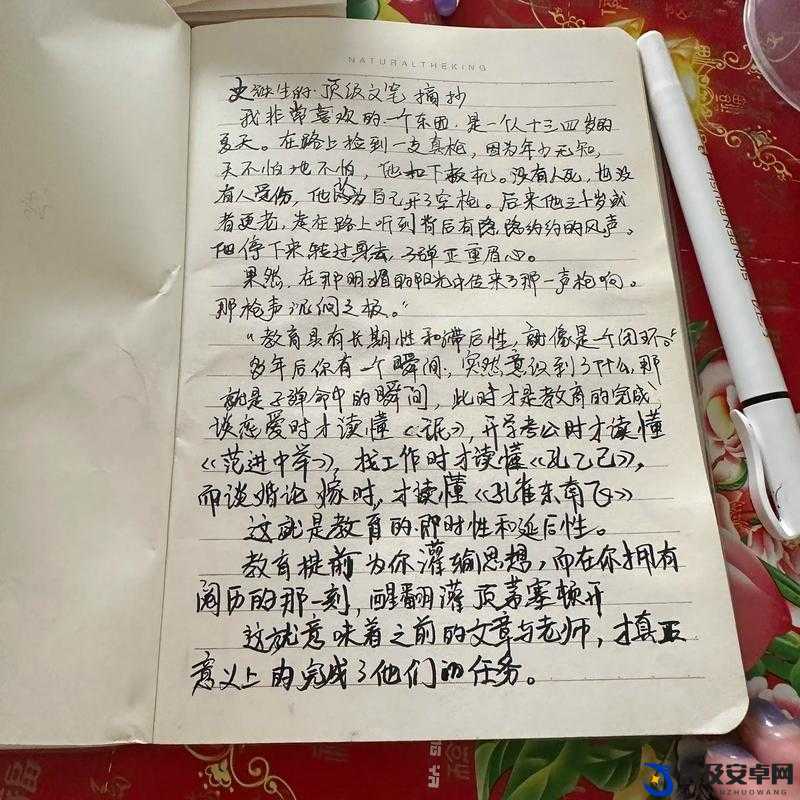 NATURALTHEKING
史铁生的·顶级文笔 摘抄
我非常喜欢的一个东西.是一个人十三四岁的
夏天。在路上捡到一支真枪,因为年少无知,
天不怕地不怕,他扣下扳机。没有人死,也没
有人受伤,他以为自己开了空枪。后来他三十岁或
者更老,走在路上听到背后有隐隐约约的风声。
他停下来转过身去,子弹正重眉心。
果然,在那明媚的阳光中传来了那一声枪响。
那枪声沉闷之极。"
"教育具有长期性和滞后性,就像是一个闭环。"
多年后你有一个瞬间,突然意识到了什么,那
就是子弹命中的瞬间,此时才是教育的完成
谈恋爱时才读懂《氓》,开学考公时才读懂
《范进中举》,找工作时才读懂《孔乙己》,
而谈婚论嫁时,才读懂《孔雀东南飞》
这就是教育的即时性和延后性。
教育提前为你灌输思想,而在你拥有
阅历的那一刻,醒翻灌顶茅塞顿开
这就意味着之前的文章与老师,才真正
意义上的完成了他们的任务。
及安卓网
ZHUOWANG